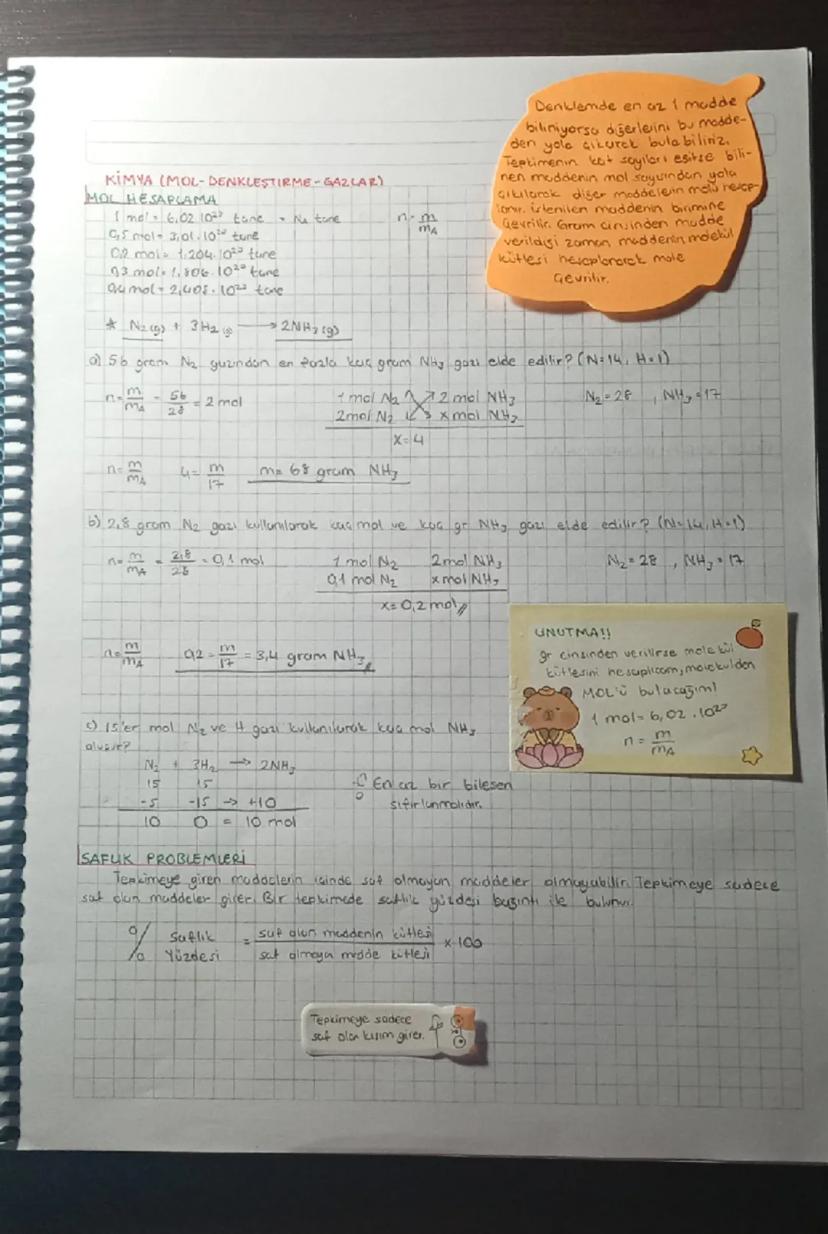 Denklemde en az 1 madde
biliniyorsa diğerlerini bu madde-
den yola çıkarak bulabiliriz.
Tepkimenin kat sayıları eşitse bili-
nen maddenin mol sayısından yola
çıkılarak diğer maddelerin molü hesap-
lanır. İstenilen maddenin birimine
çevrilir. Gram cinsinden madde
verildiği zaman maddenin molekül
kütlesi hesaplanarak mole
çevrilir.
KİMYA (MOL-DENKLEŞTİRME-GAZLAR)
MOL HESAPLAMA
1 mol = 6,02 10²³ tane = Na tane
n = m/mA
0,5 mol = 3,01.10²³ tane
0,2 mol = 1,204.10²³ tane
0,3 mol = 1,806.10²³ tane
0,4 mol = 2,408.10²³ tane
* N₂(g) + 3H₂(g) → 2NH₃(g)
a) 56 gram N₂ gazından en fazla kaç gram NH₃ gazı elde edilir? (N=14, H=1)
n = m/mA = 56/28 = 2 mol
1 mol N₂ 2 mol NH₃
2 mol N₂ x mol NH₃
x=4
N₂=28 , NH₃=17
n = m/mA 4 = m/17 m= 68 gram NH₃
b) 2,8 gram N₂ gazı kullanılarak kaç mol ve kaç gr NH₃ gazı elde edilir? (N=14, H=1)
n = m/mA = 2,8/28 = 0,1 mol
1 mol N₂ 2mol NH₃
0,1 mol N₂ x mol NH₃
x= 0,2 mol //
N₂=28 , NH₃=17
n = m/mA 0,2 = m/17 = 3,4 gram NH₃ //
UNUTMA!!
gr cinsinden verilirse molekül
kütlesini hesaplıcam, molekulden
MOL'Ü bulacağım!
1 mol= 6,02.10²³
n = m/mA
c) 15'er mol N₂ ve H gazı kullanılarak kaç mol NH₃
oluşur?
N₂ + 3H₂ → 2NH₃
15 15
-5 -15 → +10
10 0 = 10 mol
En az bir bileşen
sıfırlanmalıdır.
SAFLIK PROBLEMLERİ
Tepkimeye giren maddelerin içinde saf olmayan maddeler olmayabilir. Tepkimeye sadece
saf olan maddeler girer. Bir tepkimede saflık yüzdesi bağıntı ile bulunur.
% Saflık Yüzdesi = saf olan maddenin kütlesi / saf olmayan madde kütlesi x 100
Tepkimeye sadece
saf olan kısım girer.